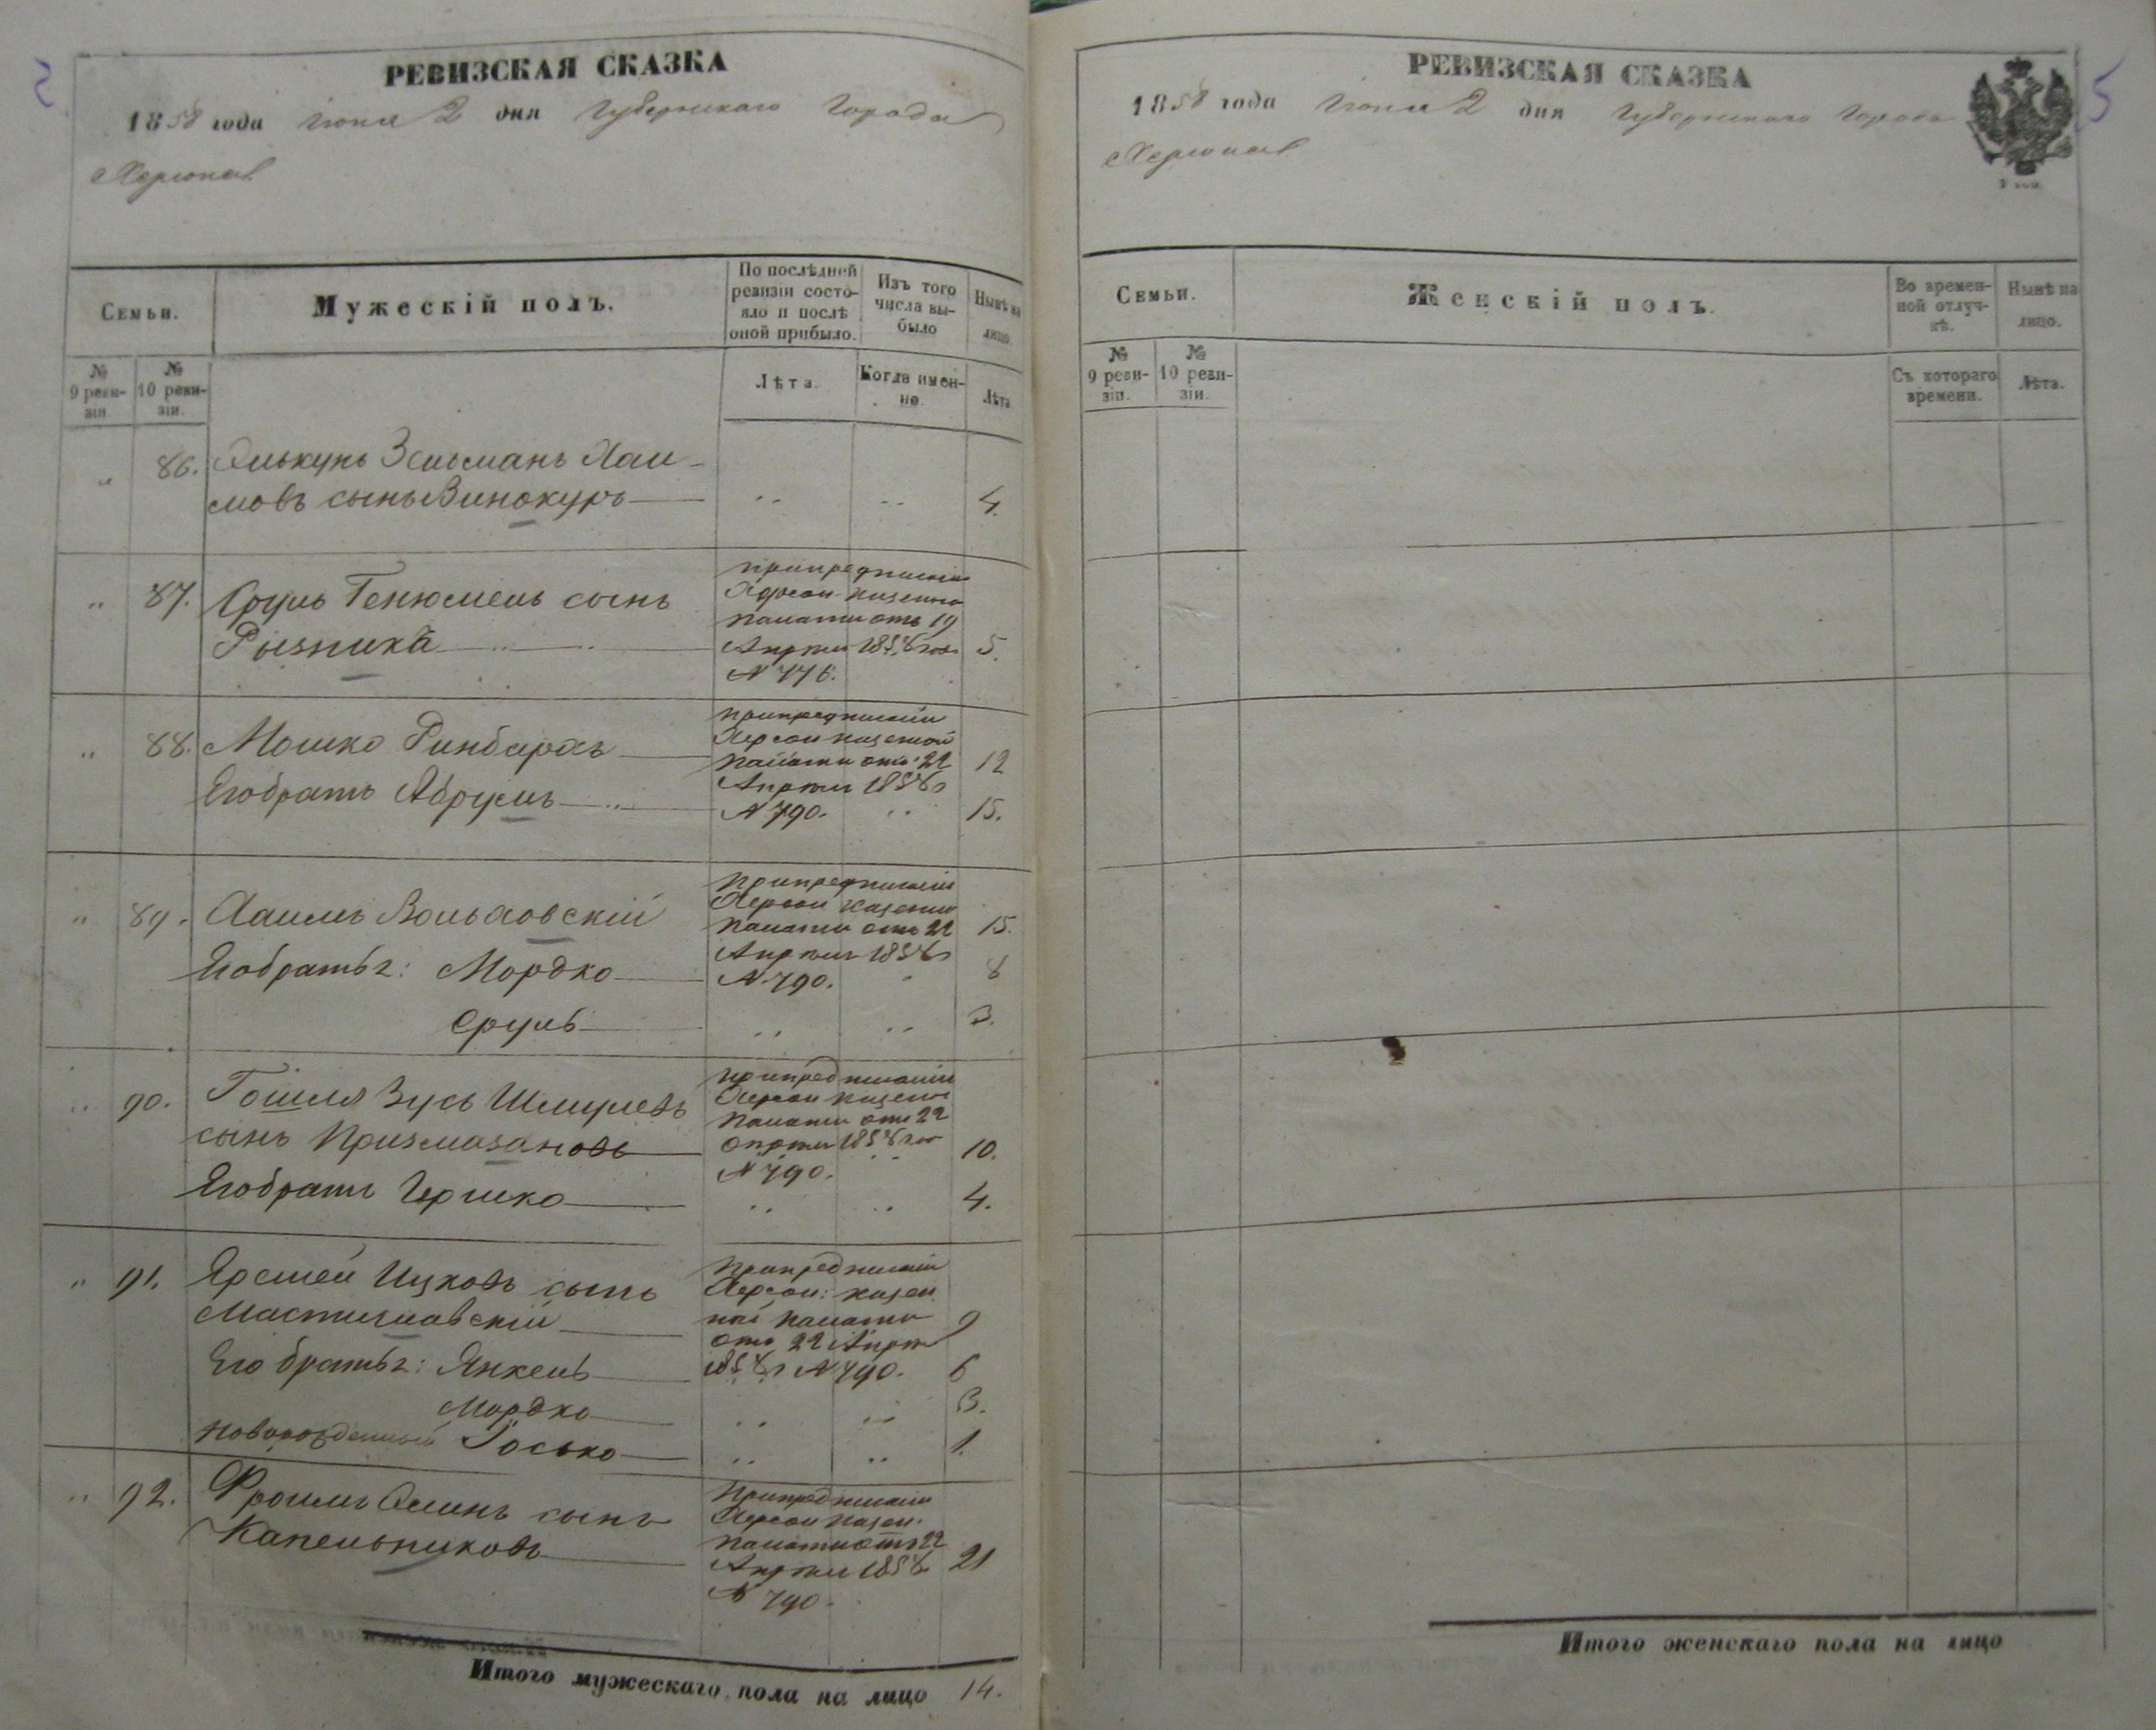 РЕВИЗСКАЯ СКАЗКА
1858 года Июня 2 дня Губернскаго Города
Херсона
Семьи.
Мужескій полъ.
По послѣдней ревизіи состояло и послѣ оной прибыло.
Изъ того числа выбыло
Нынѣ на лицо
№ 9 ревизіи.
№ 10 ревизіи.
Лѣта.
Когда именно.
Лѣта
86. Зельманъ Хаи-
мовъ сынъ Винокуръ 4.
87. Сруль сынъ
Рызника 5.
при предписаніи
Херсон казенно
палаты отъ 19
Апрѣля 1858 года
№ 776.
88. Мошко Ринбархъ 12
Его братъ Абрумъ 15.
при предписаніи
Херсон казенной
палаты отъ 22
Апрѣля 1858
№ 790.
89. Хаимъ Вольховскій 15.
Его братья: Мордко 8
Сруль 3.
при предписаніи
Херсон казенно
палаты отъ 22
Апрѣля 1858
№ 790.
90. Зусь Шмулевъ
сынъ Призмазановъ 10.
Его братъ Гершко 4.
при предписаніи
Херсон казенно
палаты отъ 22
Апрѣля 1858 года
№ 790.
91. Ицковъ сынъ
9
Его братья: Янкель 6
Мордко 3.
новорожденный Іосько 1.
при предписаніи
Херсон: казен
ной палаты
отъ 22 Апрѣля
1858 № 790.
92. Фроимъ сынъ
Капельниковъ 21
при предписаніи
Херсон казен.
палаты отъ 22
Апрѣля 1858
№ 790.
Итого мужескаго пола на лицо 14.
РЕВИЗСКАЯ СКАЗКА
1858 года Июня 2 дня Губернскаго Города
Херсона
5
Семьи.
Женскій полъ.
Во временной отлучкѣ.
Нынѣ на лицо.
№ 9 ревизіи.
№ 10 ревизіи.
Съ котораго времени.
Лѣта.
Итого женскаго пола на лицо